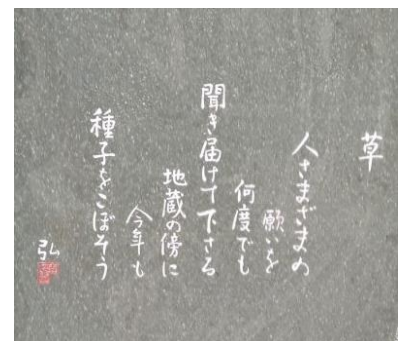 草
人さまざまの
願いを
何度でも
聞き届けて下さる
地蔵の傍に
今年も
種子をこぼそう
弘